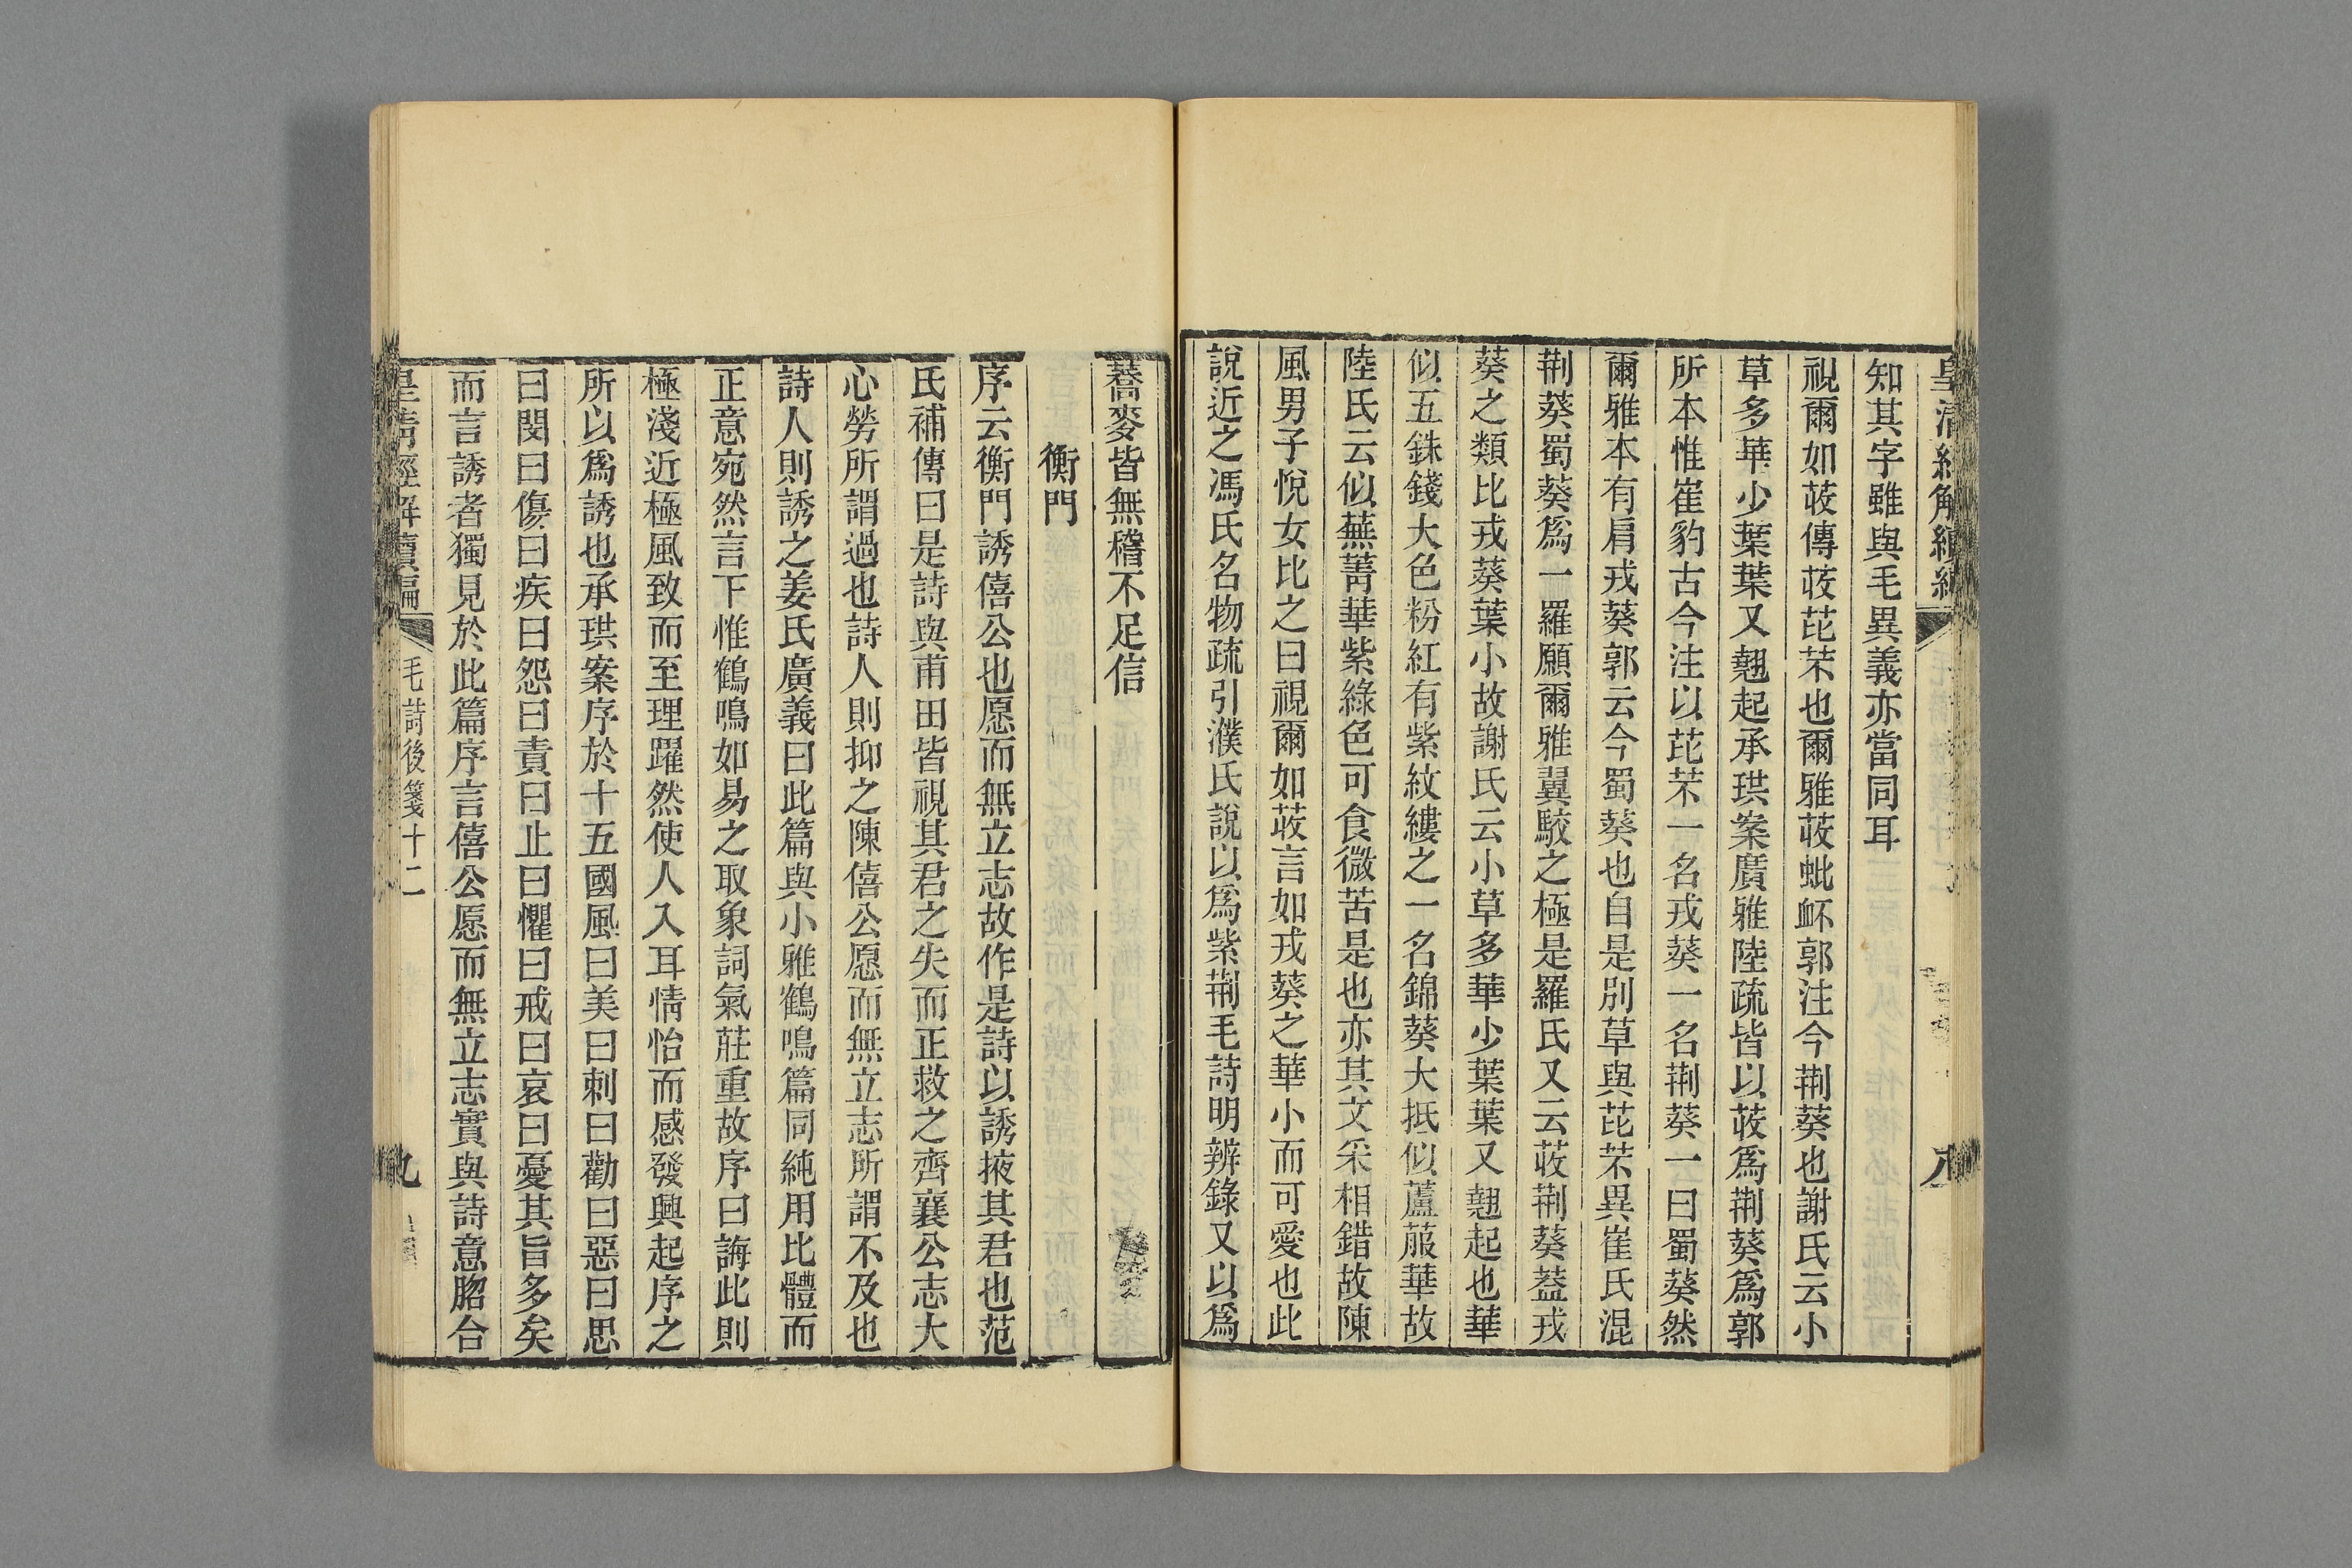 皇清經解續編
八
知其字雖與毛異義亦當同耳
視爾如荍傳荍芘芣也爾雅荍蚍衃郭注今荆葵也謝氏云小
草多華少葉葉又翹起承珙案廣雅陸疏皆以荍爲荆葵爲郭
所本惟崔豹古今注以芘芣一名戎葵一名荆葵一曰蜀葵然
爾雅本有肩戎葵郭云今蜀葵也自是別草與芘芣異崔氏混
荆葵蜀葵爲一羅願爾雅翼駮之極是羅氏又云荍荆葵葢戎
葵之類比戎葵葉小故謝氏云小草多華少葉葉又翹起也華
似五銖錢大色粉紅有紫紋縷之一名錦葵大抵似蘆菔華故
陸氏云似蕪菁華紫綠色可食微苦是也亦其文采相錯故陳
風男子悅女比之曰視爾如荍言如戎葵之華小而可愛也此
說近之馮氏名物疏引濮氏說以爲紫荆毛詩明辨錄又以爲
蕎麥皆無稽不足信
衡門
序云衡門誘僖公也愿而無立志故作是詩以誘掖其君也范
氏補傳曰是詩與甫田皆視其君之失而正救之齊襄公志大
心勞所謂過也詩人則抑之陳僖公愿而無立志所謂不及也
詩人則誘之姜氏廣義曰此篇與小雅鶴鳴篇同純用比體而
正意宛然言下惟鶴鳴如易之取象詞氣莊重故序曰誨此則
極淺近極風致而至理躍然使人入耳情怡而感發興起序之
所以爲誘也承珙案序於十五國風曰美曰刺曰勸曰惡曰思
曰閔曰傷曰疾曰怨曰責曰止曰懼曰戒曰哀曰憂其旨多矣
而言誘者獨見於此篇序言僖公愿而無立志實與詩意脗合
皇清經解續編
毛詩後箋十二
九